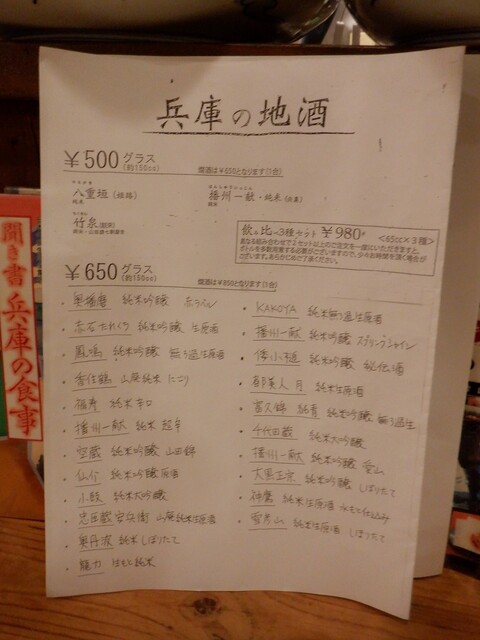 兵庫の地酒
¥500 グラス
(約150cc)
燗酒は¥650となります(1合)
八重垣 (姫路)
純米
播州一献・純米 (宍粟)
竹泉(朝来)
飲み比べ3種セット ¥980 <65cc×3種>
¥650 グラス
(約150cc)
燗酒は¥850となります(1合)
・奥播磨 純米吟醸 赤ライン
・赤石たれくち 純米吟醸 生原酒
・鳳鳴 純米吟醸 無ろ過生原酒
・香住鶴 山廃純米 にごり
・福寿 純米辛口
・播州一献 純米 超辛
・空蔵 純米吟醸 山田錦
・仙介 純米吟醸原酒
・小鼓 純米大吟醸
・忠臣蔵安兵衛 山廃純米生原酒
・奥丹波 純米しぼりたて
・龍力 生もと純米
・KAKOYA 純米無ろ過生原酒
・播州一献 純米吟醸 スプリングシャイン
・倭小槌 純米吟醸 秘伝酒
・都美人 月 純米生原酒
・富久錦 純青 純米吟醸 無ろ過生
・千代田蔵 純米大吟醸
・播州一献 純米吟醸 愛山
・大黒正宗 純米吟醸 しぼりたて
・神鷹 純米生原酒 水もと仕込み
・雪彦山 純米生原酒 しぼりたて
聞き書 兵庫の食事